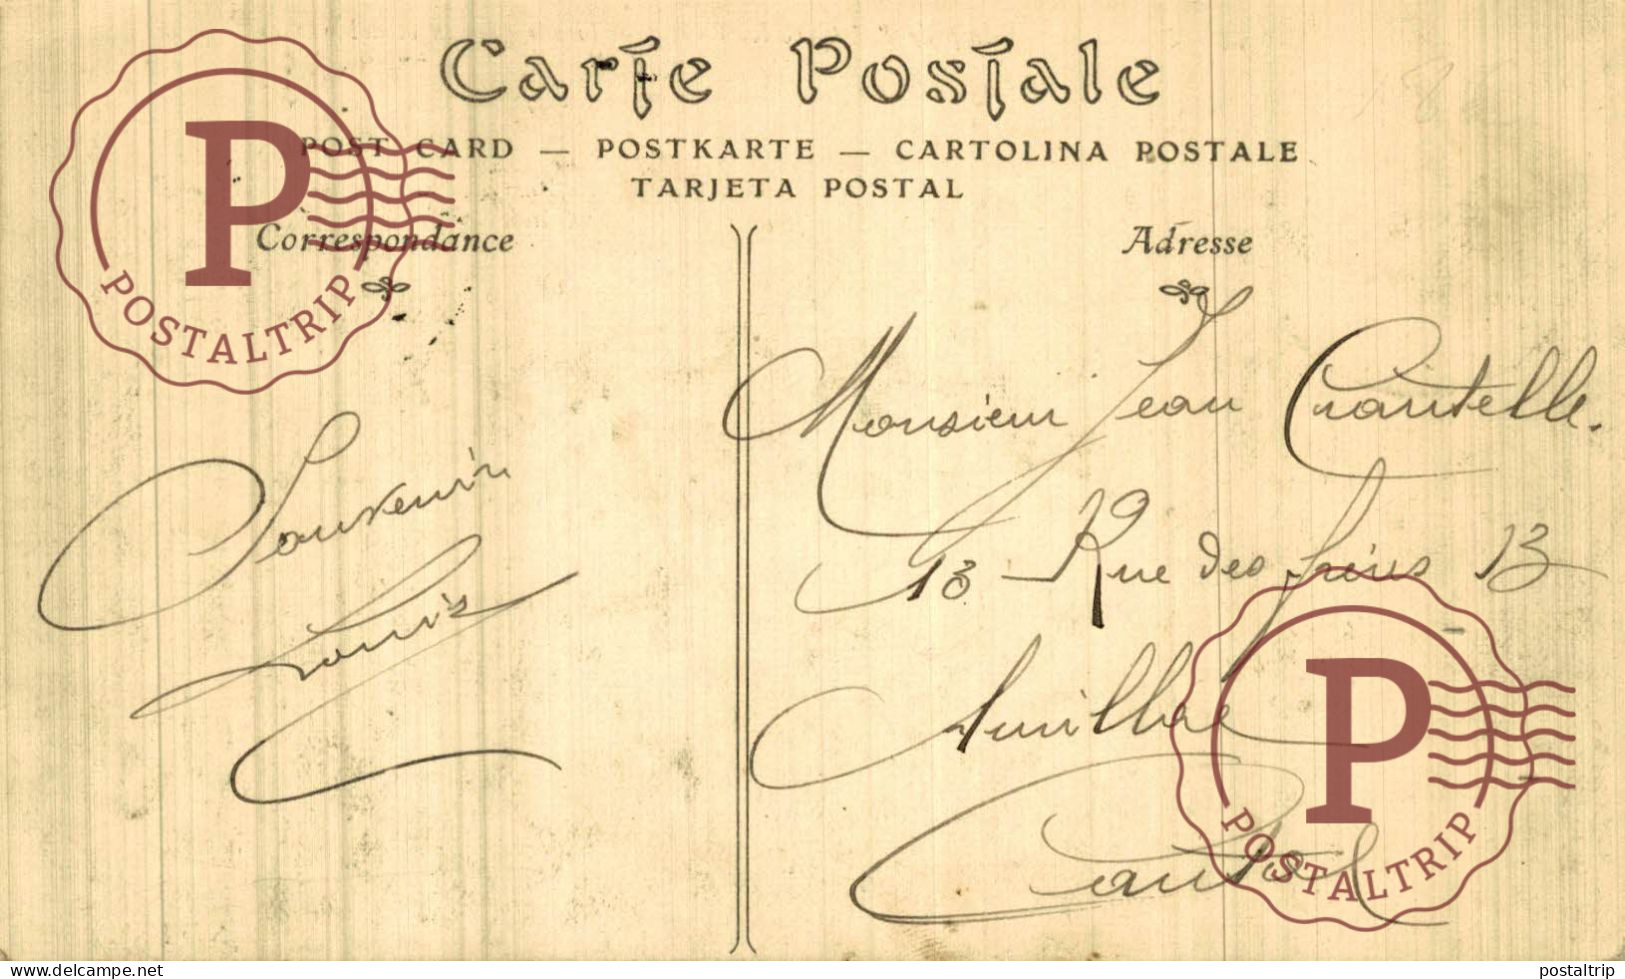 Carte Postale
POST CARD — POSTKARTE — CARTOLINA POSTALE
TARJETA POSTAL
Correspondance
Adresse
P
POSTALTRIP
Souvenir
Louis
Monsieur Jean Crantelle.
13 - Rue des frères 13
Aurillac
Cantal
P
POSTALTRIP
www.delcampe.net
postaltrip